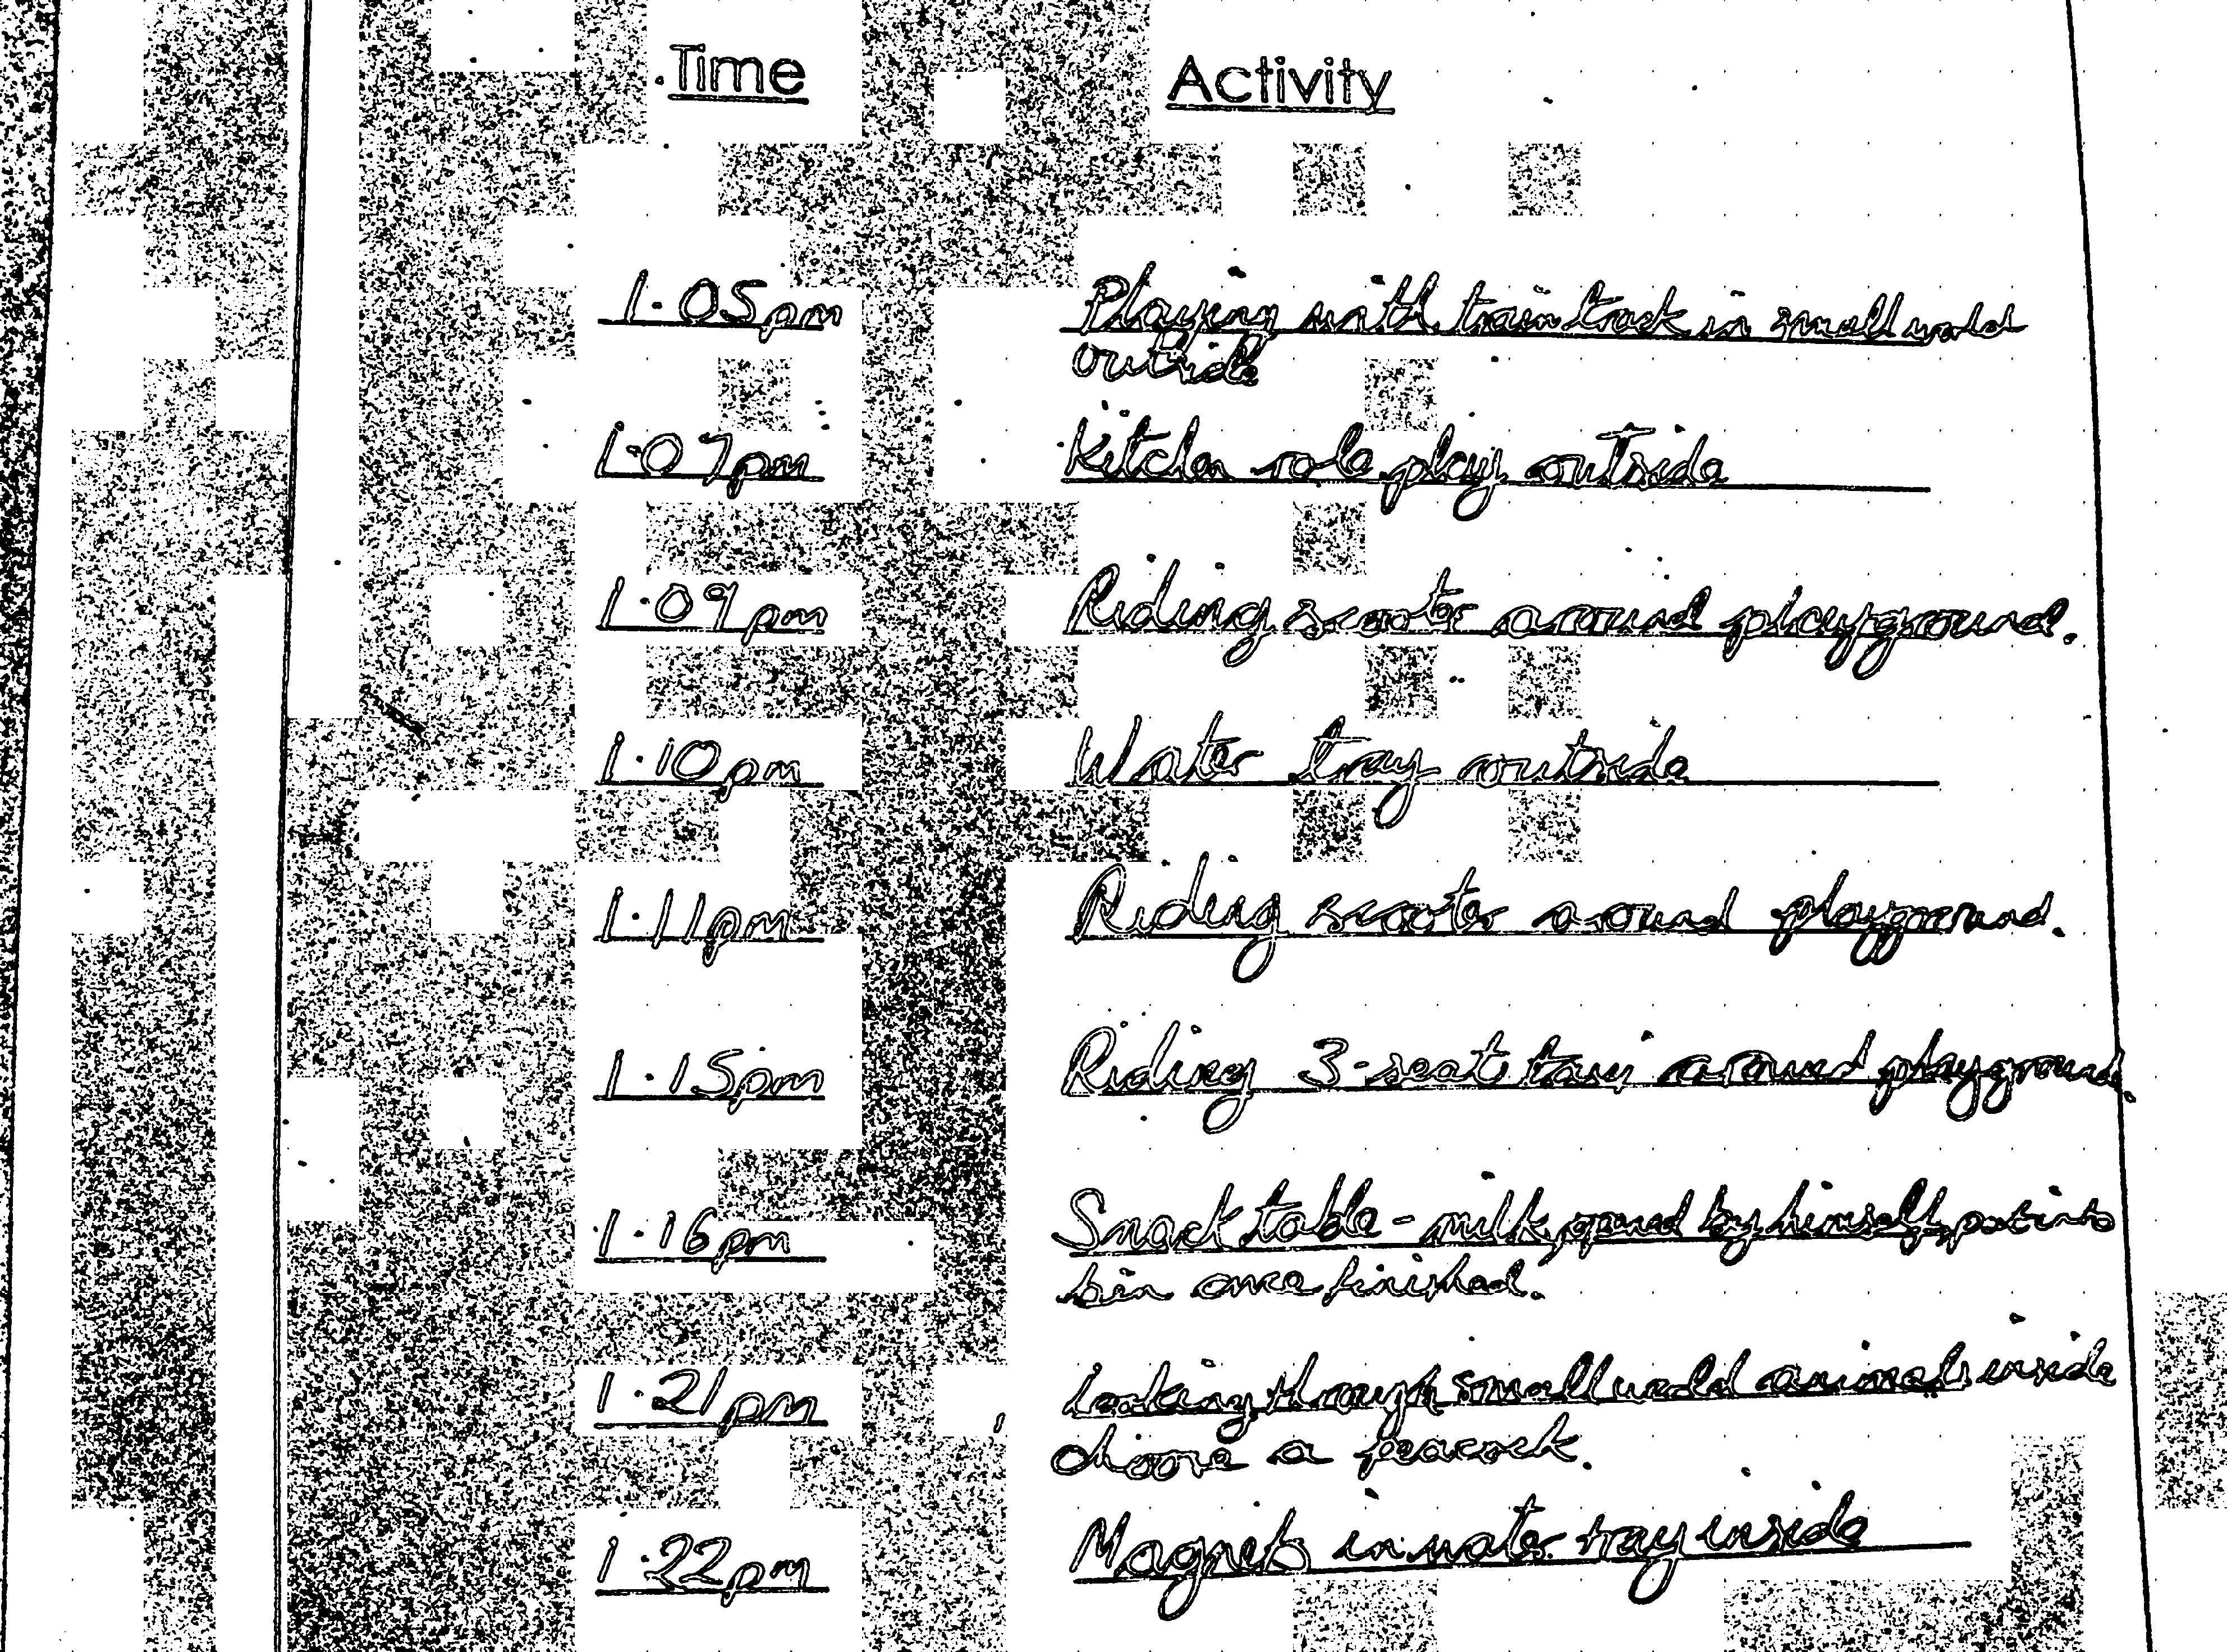 Time Activity
1.05pm Playing with train track in small world
outside
1.07pm Kitchen role play outside
1.09pm Riding scooter around playground.
1.10pm Water tray outside
1.11pm Riding scooter around playground.
1.15pm Riding 3-seat taxi around playground.
1.16pm Snack table - milk, opened by himself, put into
bin once finished.
1.21pm Looking through small world animals inside
choose a peacock.
1.22pm Magnets in water tray inside